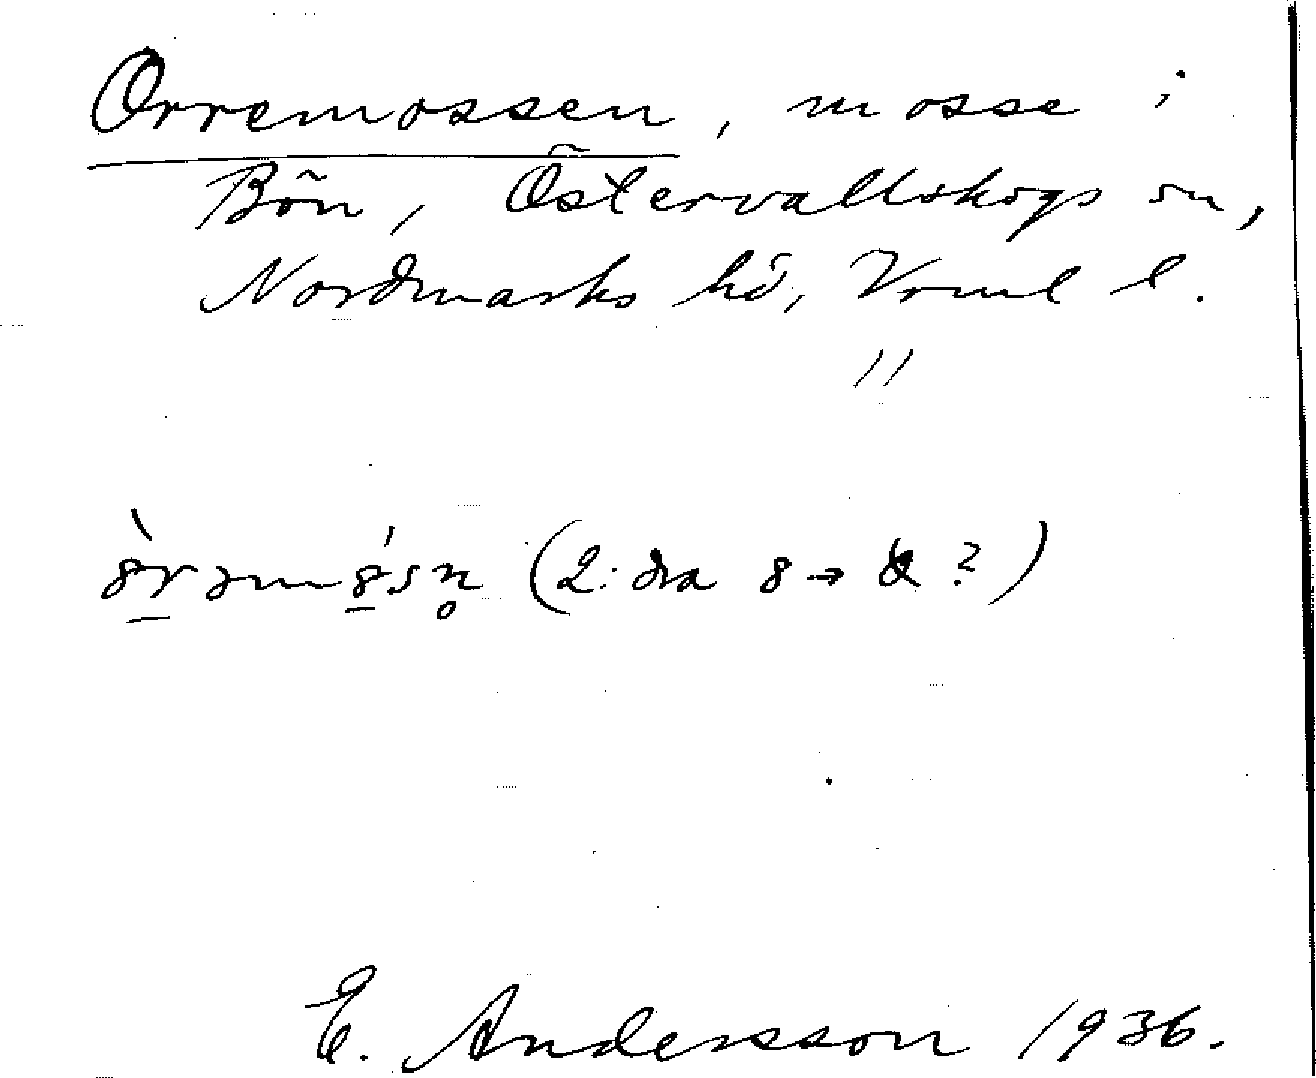 Orremossen, mosse i
Bön, Östervallskogs sn,
Nordmarks hd, Vrml l.
"
(2:dra 8 → ?)
E. Andersson 1936.